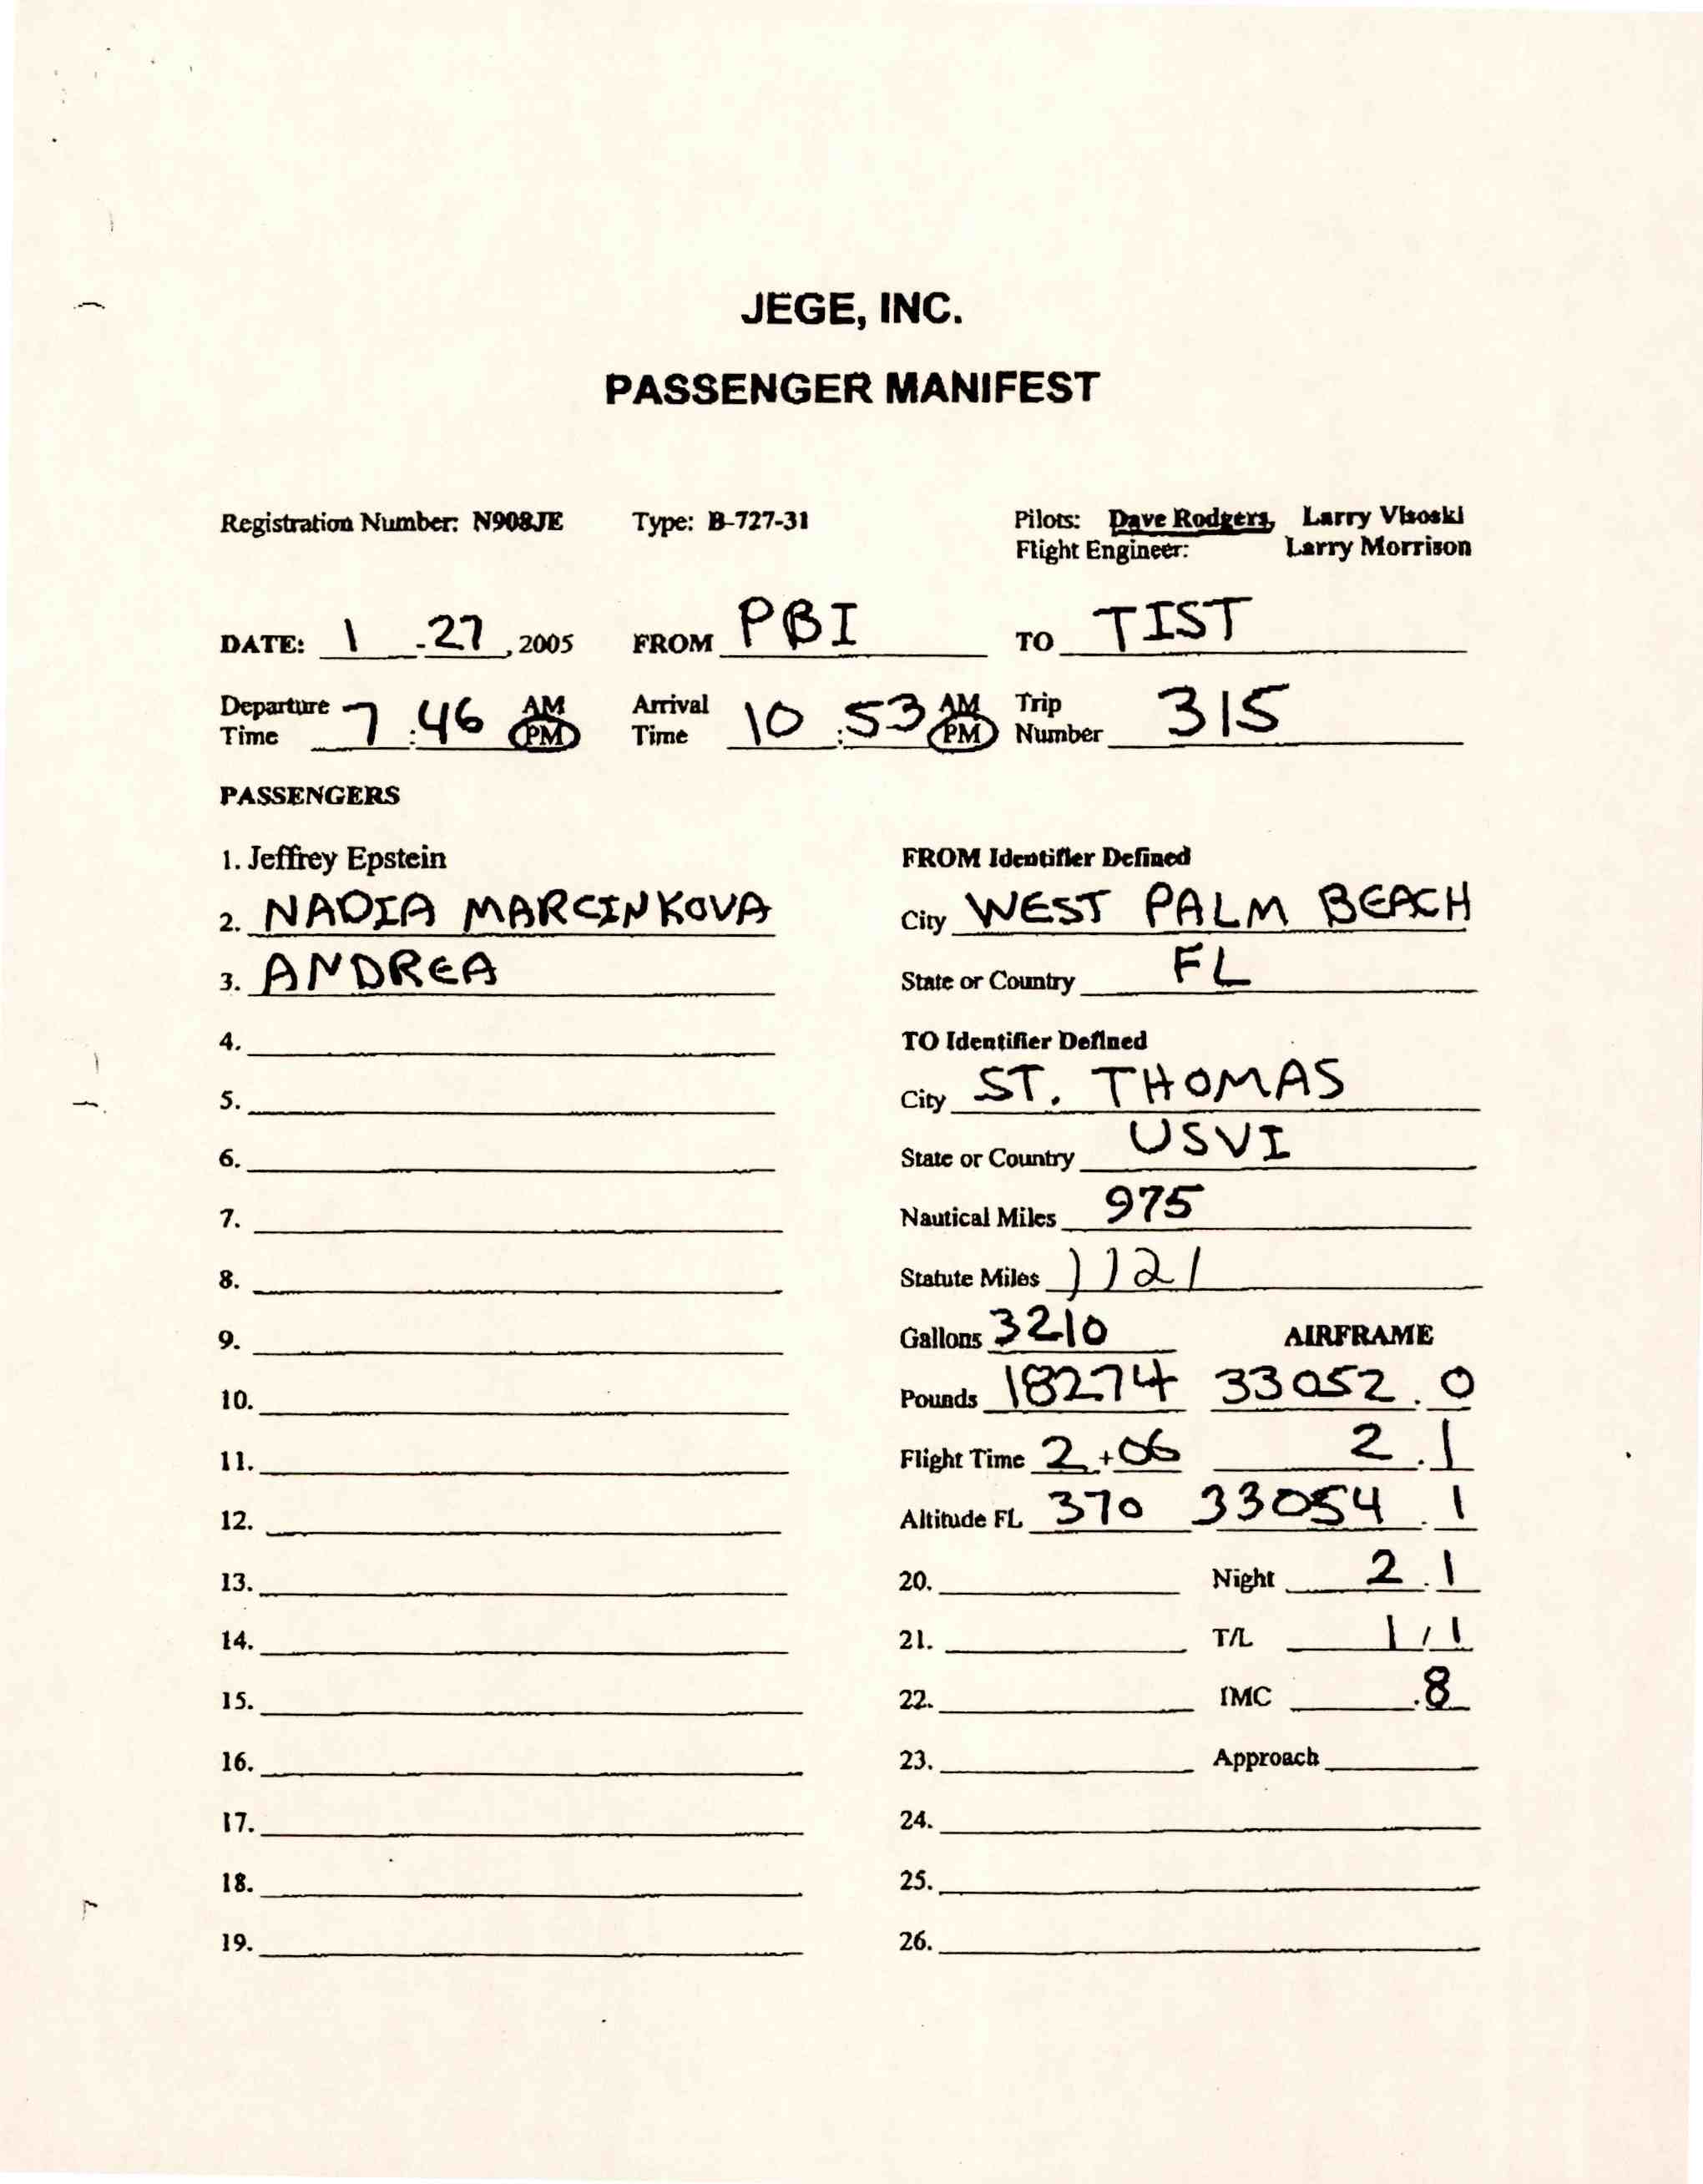 JEGE, INC.
PASSENGER MANIFEST
Registration Number: N908JE Type: B-727-31 Pilots: Dave Rodgers, Larry Visoski
Flight Engineer: Larry Morrison
DATE: 1 - 27, 2005 FROM PBI TO TIST
Departure Time 7:46 AM PM Arrival Time 10:53 AM PM Trip Number 315
PASSENGERS
1. Jeffrey Epstein
2. NADIA MARCINKOVA
3. ANDREA
4.
5.
6.
7.
8.
9.
10.
11.
12.
13.
14.
15.
16.
17.
18.
19.
FROM Identifier Defined
City WEST PALM BEACH
State or Country FL
TO Identifier Defined
City ST. THOMAS
State or Country USVI
Nautical Miles 975
Statute Miles 1121
Gallons 3210 AIRFRAME
Pounds 18274 33052.0
Flight Time 2+06 2.1
Altitude FL 370 33054.1
20. Night 2.1
21. T/L 1/1
22. IMC .8
23. Approach
24.
25.
26.